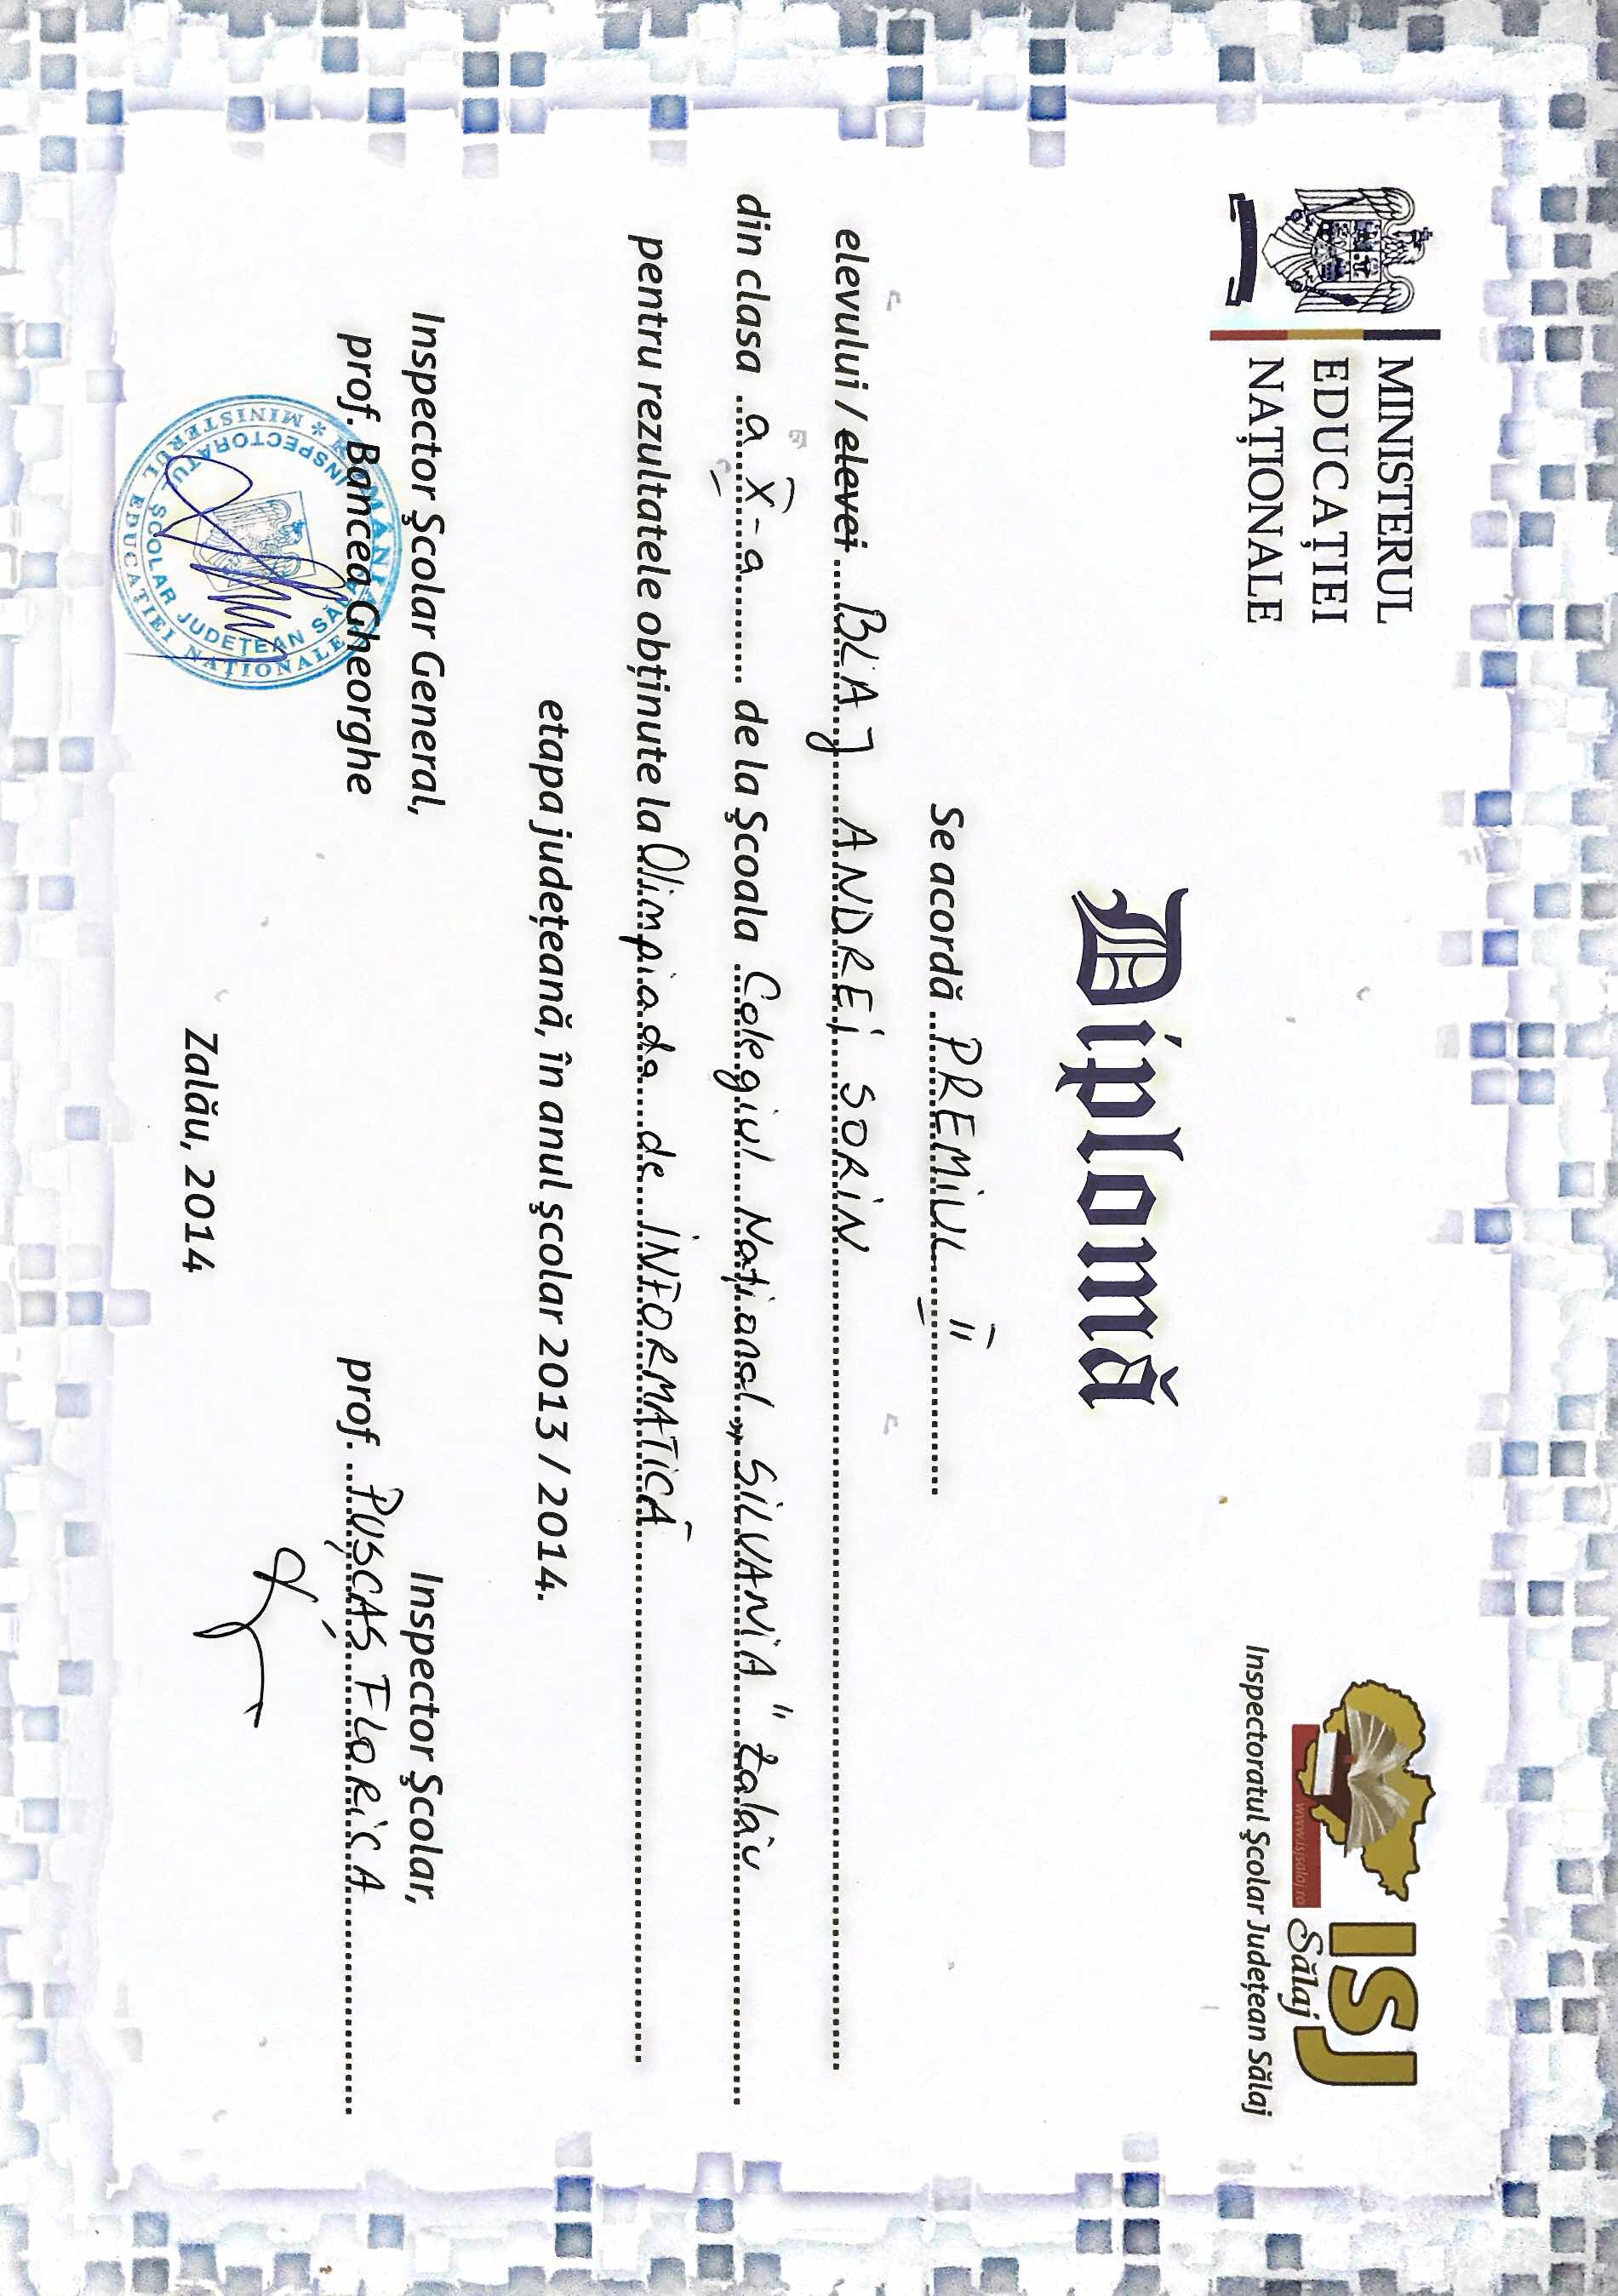 MINISTERUL
EDUCAȚIEI
NAȚIONALE
www.isjsalaj.ro
ISJ
Sălaj
Inspectoratul Şcolar Judeţean Sălaj
Diplomă
Se acordă PREMIUL II
elevului / elevei BLAJ ANDREI SORIN
din clasa a X-a de la Şcoala Colegiul Național „SILVANIA" Zalău
pentru rezultatele obţinute la Olimpiada de INFORMATICĂ
etapa judeţeană, în anul şcolar 2013 / 2014.
Inspector Şcolar General,
prof. Bancea Gheorghe
Inspector Şcolar,
prof. PUȘCAȘ FLORICA
ROMÂNIA * MINISTERUL EDUCAȚIEI NAȚIONALE
INSPECTORATUL ȘCOLAR JUDEȚEAN SĂLAJ
Zalău, 2014